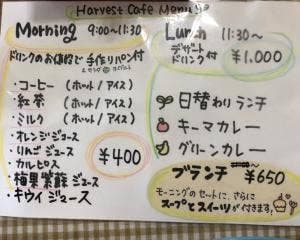 Harvest Cafe Menu
Morning 9:00〜11:30
ドリンクのお値段で手作りパン付
・コーヒー (ホット/アイス)
・紅茶 (ホット/アイス)
・ミルク (ホット/アイス)
・オレンジジュース
・りんごジュース
・カルピス
・梅果紫蘇ジュース
・キウイジュース
¥400
Lunch 11:30〜
デザート
ドリンク付
¥1,000
日替わりランチ
キーマカレー
グリーンカレー
ブランチ ¥650
モーニングのセットに、さらに
スープとスイーツが付きます!